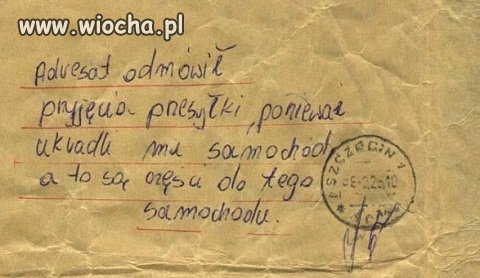 www.wiocha.pl
Adresat odmówił
przyjęcia przesyłki, ponieważ
ukradli mu samochód,
a to są częsci do tego
samochodu.
SZCZECIN 1